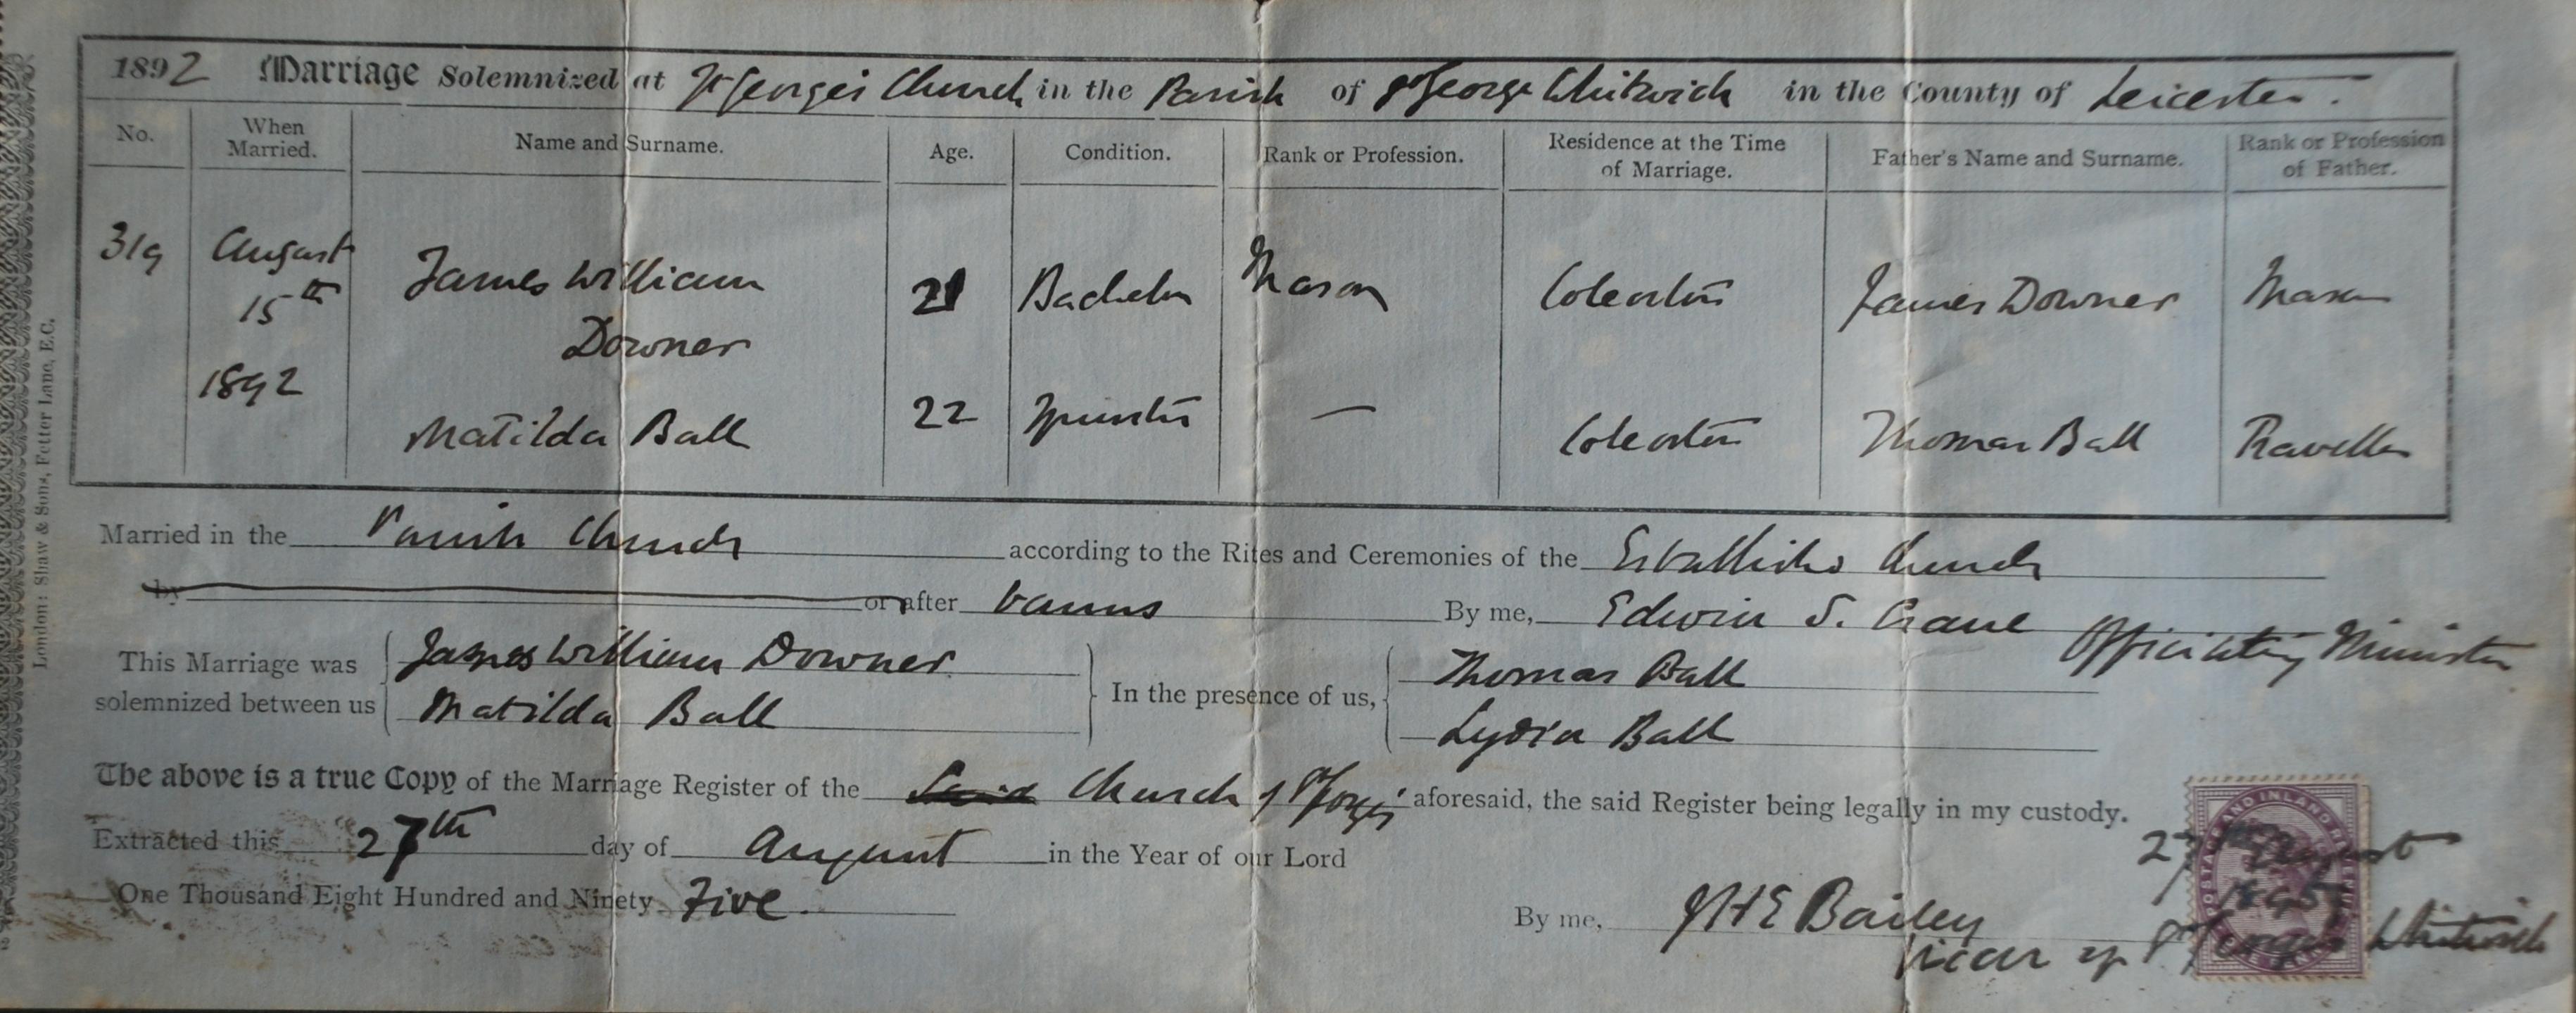 1892 Marriage Solemnized at St Georges Church in the Parish of St George Whitwick in the County of Leicester.
No. When Married. Name and Surname. Age. Condition. Rank or Profession. Residence at the Time of Marriage. Father's Name and Surname. Rank or Profession of Father.
319 August 15th 1892 James William Downer 21 Bachelor Mason Coleorton James Downer Mason
Matilda Ball 22 Spinster — Coleorton Thomas Ball Traveller
Married in the Parish Church according to the Rites and Ceremonies of the Established Church
by or after banns By me, Edwin S. Crane Officiating Minister
This Marriage was solemnized between us James William Downer In the presence of us, Thomas Ball
Matilda Ball Lydia Ball
The above is a true Copy of the Marriage Register of the Said Church of St Georges aforesaid, the said Register being legally in my custody.
Extracted this 27th day of August in the Year of our Lord
27th August
One Thousand Eight Hundred and Ninety Five.
1895
By me, J H E Bailey
Vicar of St Georges Whitwick
POSTAGE AND INLAND REVENUE
London: Shaw & Sons, Fetter Lane, E.C.